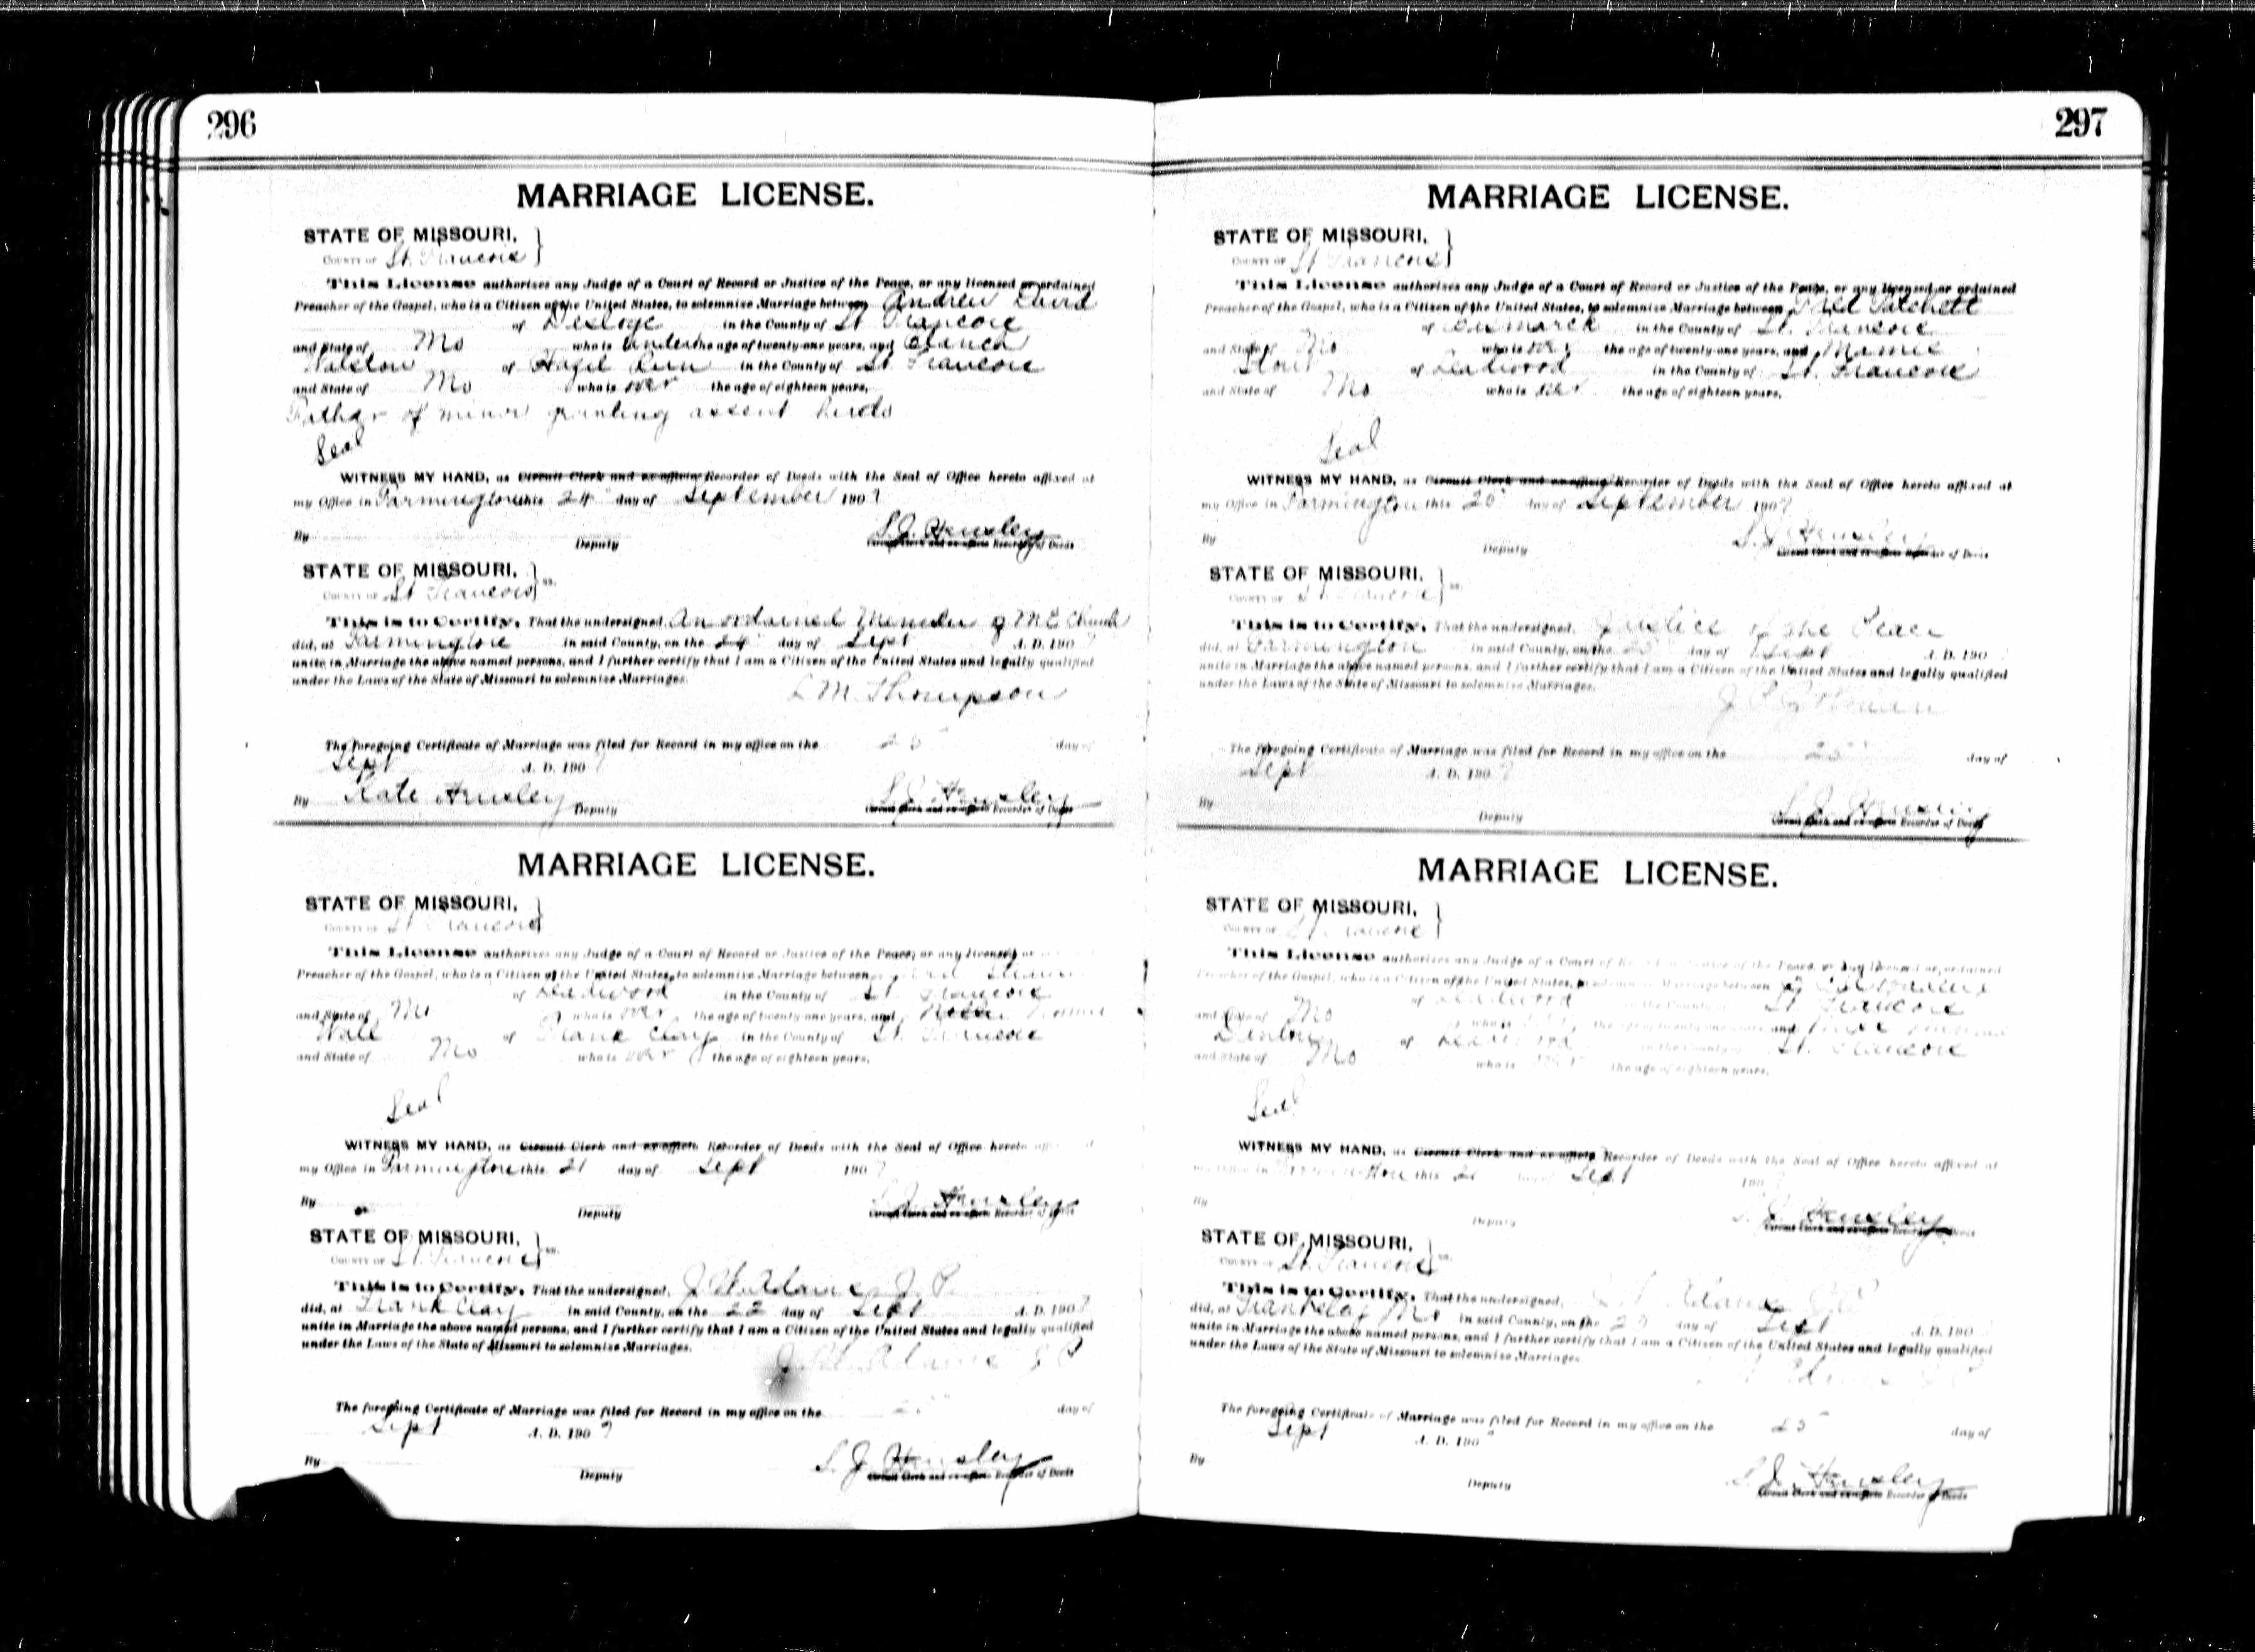 296
MARRIAGE LICENSE.
STATE OF MISSOURI,
COUNTY OF St. Francois
This License authorizes any Judge of a Court of Record or Justice of the Peace, or any licensed or ordained
Preacher of the Gospel, who is a Citizen of the United States, to solemnize Marriage between Andrew
of Desloge in the County of St Francois
and State of Mo who is under the age of twenty-one years, and
of Hazel Run in the County of St Francois
and State of Mo who is over the age of eighteen years,
Father of minor granting assent
Seal
WITNESS MY HAND, as Circuit Clerk and ex-officio Recorder of Deeds with the Seal of Office hereto affixed at
my Office in Farmington this 24 day of September 1907
S.J. Hensley
By Deputy Circuit Clerk and ex-officio Recorder of Deeds
STATE OF MISSOURI,
COUNTY OF St Francois ss.
This is to Certify, That the undersigned, An ordained Minister of M E Church
did, at Farmington in said County, on the 24 day of Sept A. D. 190
unite in Marriage the above named persons, and I further certify that I am a Citizen of the United States and legally qualified
under the Laws of the State of Missouri to solemnize Marriages.
L M Thompson
The foregoing Certificate of Marriage was filed for Record in my office on the 25 day of
Sept A. D. 190
By Kate Hensley Deputy S.J. Hensley
Circuit Clerk and ex-officio Recorder of Deeds
MARRIAGE LICENSE.
STATE OF MISSOURI,
COUNTY OF St Francois
This License authorizes any Judge of a Court of Record or Justice of the Peace, or any licensed or
Preacher of the Gospel, who is a Citizen of the United States, to solemnize Marriage between
of Leadwood in the County of St Francois
and State of Mo who is over the age of twenty-one years, and
Hall of Frank Clay in the County of St. Francois
and State of Mo who is over the age of eighteen years,
Seal
WITNESS MY HAND, as Circuit Clerk and ex-officio Recorder of Deeds with the Seal of Office hereto
my Office in Farmington this 21 day of Sept 190
S.J. Hensley
By Deputy Circuit Clerk and ex-officio Recorder of Deeds
STATE OF MISSOURI,
COUNTY OF St. Francois ss.
This is to Certify, That the undersigned, J. H. Adams J. P.
did, at Frank Clay in said County, on the 22 day of Sept A. D. 1907
unite in Marriage the above named persons, and I further certify that I am a Citizen of the United States and legally qualified
under the Laws of the State of Missouri to solemnize Marriages.
J. H. Adams J P
The foregoing Certificate of Marriage was filed for Record in my office on the day of
Sept A. D. 1907
S. J. Hensley
By Deputy Circuit Clerk and ex-officio Recorder of Deeds
297
MARRIAGE LICENSE.
STATE OF MISSOURI,
COUNTY OF St Francois
This License authorizes any Judge of a Court of Record or Justice of the Peace, or any licensed or ordained
Preacher of the Gospel, who is a Citizen of the United States, to solemnize Marriage between
of Bismarck in the County of St. Francois
and State of Mo who is over the age of twenty-one years, and Mamie
of Leadwood in the County of St. Francois
and State of Mo who is over the age of eighteen years,
Seal
WITNESS MY HAND, as Circuit Clerk and ex-officio Recorder of Deeds with the Seal of Office hereto affixed at
my Office in Farmington this 25 day of September 1907
S. J. Hensley
By Deputy Circuit Clerk and ex-officio Recorder of Deeds
STATE OF MISSOURI,
COUNTY OF St Francois ss.
This is to Certify, That the undersigned, Justice of the Peace
did, at Farmington in said County, on the 25 day of Sept A. D. 190
unite in Marriage the above named persons, and I further certify that I am a Citizen of the United States and legally qualified
under the Laws of the State of Missouri to solemnize Marriages.
The foregoing Certificate of Marriage was filed for Record in my office on the 25 day of
Sept A. D. 1907
S. J. Hensley
By Deputy Circuit Clerk and ex-officio Recorder of Deeds
MARRIAGE LICENSE.
STATE OF MISSOURI,
COUNTY OF St. Francois
This License authorizes any Judge of a Court of Record or Justice of the Peace, or any licensed or ordained
Preacher of the Gospel, who is a Citizen of the United States, to solemnize Marriage between
of Leadwood in the County of St. Francois
and State of Mo who is the age of twenty-one years and
of Leadwood in the County of St. Francois
and State of Mo who is over the age of eighteen years,
Seal
WITNESS MY HAND, as Circuit Clerk and ex-officio Recorder of Deeds with the Seal of Office hereto affixed at
my Office in Farmington this 21 day of Sept 190
S. J. Hensley
By Deputy Circuit Clerk and ex-officio Recorder of Deeds
STATE OF MISSOURI,
COUNTY OF St. Francois ss.
This is to Certify, That the undersigned, Adams
did, at Frankclay Mo in said County, on the day of Sept A. D. 190
unite in Marriage the above named persons, and I further certify that I am a Citizen of the United States and legally qualified
under the Laws of the State of Missouri to solemnize Marriages.
The foregoing Certificate of Marriage was filed for Record in my office on the 25 day of
Sept A. D. 190
S. J. Hensley
By Deputy Circuit Clerk and ex-officio Recorder of Deeds